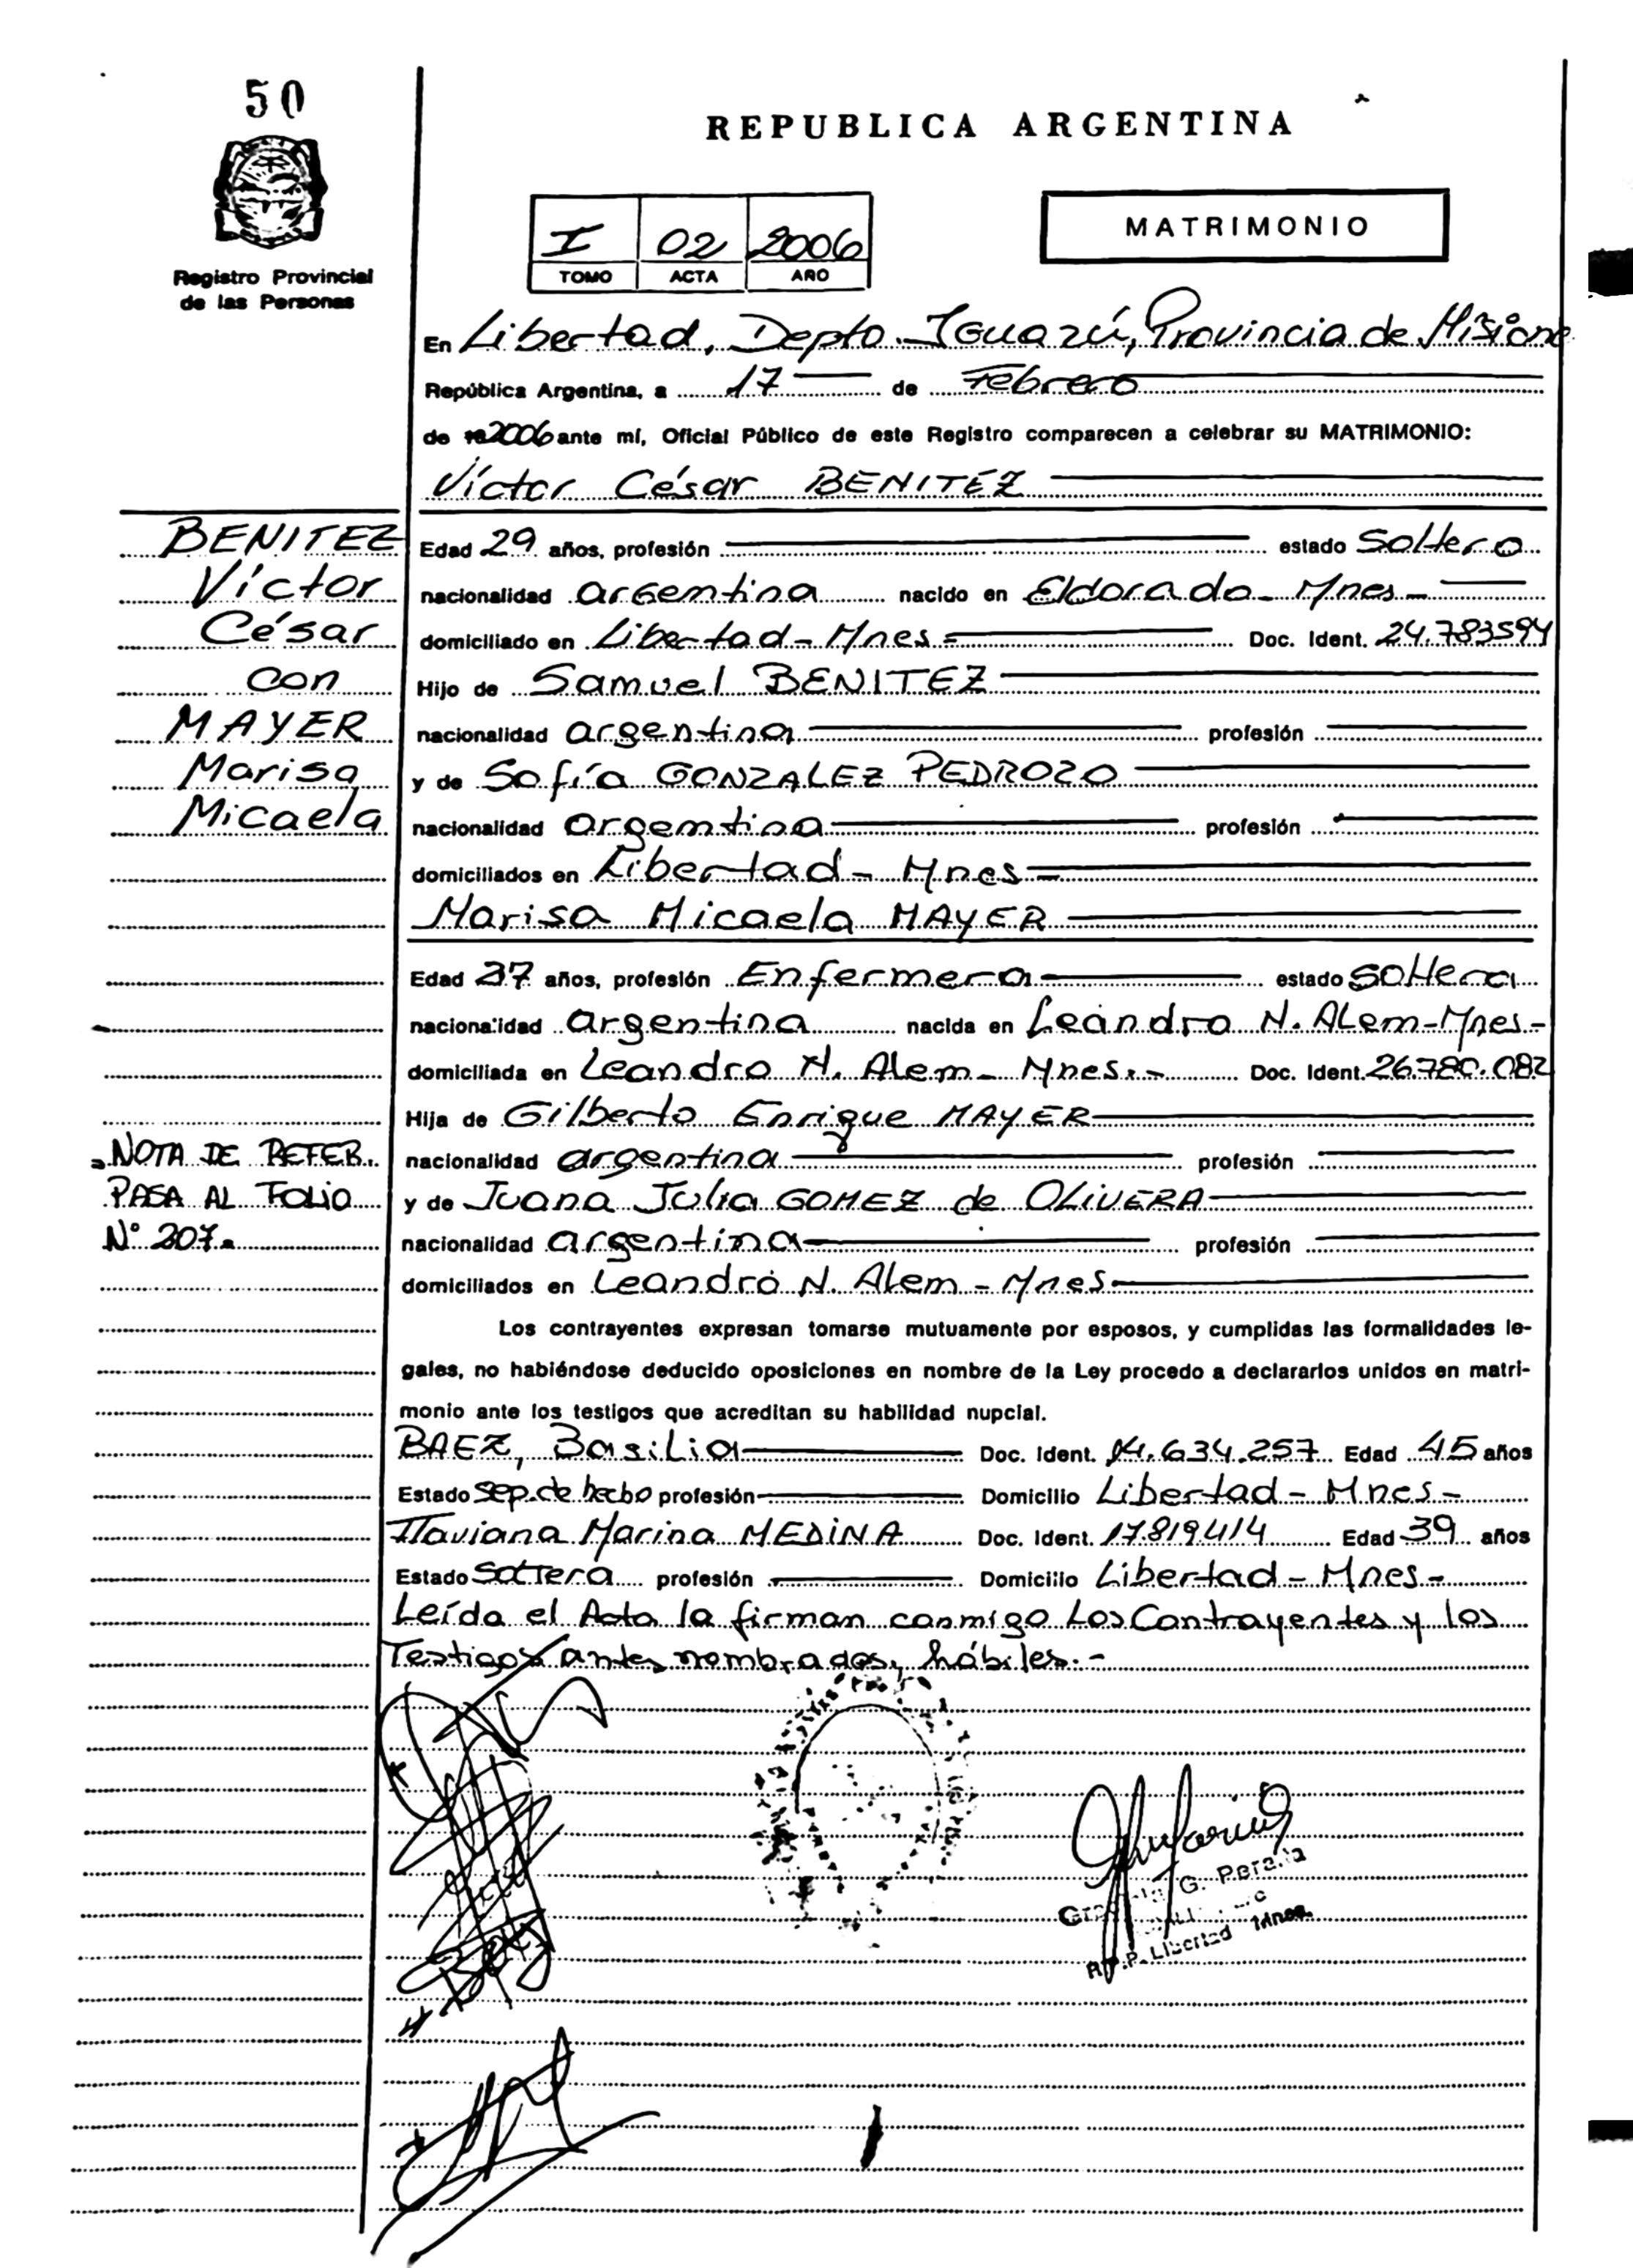 50
REPUBLICA ARGENTINA
I 02 2006
TOMO ACTA AÑO
MATRIMONIO
Registro Provincial
de las Personas
En Libertad, Depto. Iguazú, Provincia de Misione
República Argentina, a 17 de Febrero
de 2006 ante mí, Oficial Público de este Registro comparecen a celebrar su MATRIMONIO:
Víctor César BENITÉZ
BENITEZ
Víctor
César
con
MAYER
Marisa
Micaela
Edad 29 años, profesión estado Soltero
nacionalidad argentina nacido en Eldorado - Mnes -
domiciliado en Libertad - Mnes = Doc. Ident. 24.783594
Hijo de Samuel BENITEZ
nacionalidad argentina profesión
y de Sofía GONZALEZ PEDROZO
nacionalidad argentina profesión
domiciliados en Libertad - Mnes -
Marisa Micaela MAYER
Edad 27 años, profesión Enfermera estado soltera
nacionalidad argentina nacida en Leandro N. ALem - Mnes -
domiciliada en Leandro N. Alem - Mnes.- Doc. Ident. 26.780.082
Hija de Gilberto Enrique MAYER
nacionalidad argentina profesión
y de Juana Julia GOMEZ de OLIVERA
nacionalidad argentina profesión
domiciliados en Leandro N. Alem - Mnes
NOTA DE REFER.
PASA AL FOLIO
N° 207.
Los contrayentes expresan tomarse mutuamente por esposos, y cumplidas las formalidades le-
gales, no habiéndose deducido oposiciones en nombre de la Ley procedo a declararlos unidos en matri-
monio ante los testigos que acreditan su habilidad nupcial.
BAEZ, Basilia Doc. Ident. 14.634.257 Edad 45 años
Estado Sep. de hecho profesión Domicilio Libertad - Mnes -
Flaviana Marina MEDINA Doc. Ident. 17.819.414 Edad 39 años
Estado Soltera profesión Domicilio Libertad - Mnes -
Leída el Acta la firman conmigo Los Contrayentes y los
Testigos antes nombrados, hábiles.-
G. Pereira
R.P.P. Libertad Mnes.